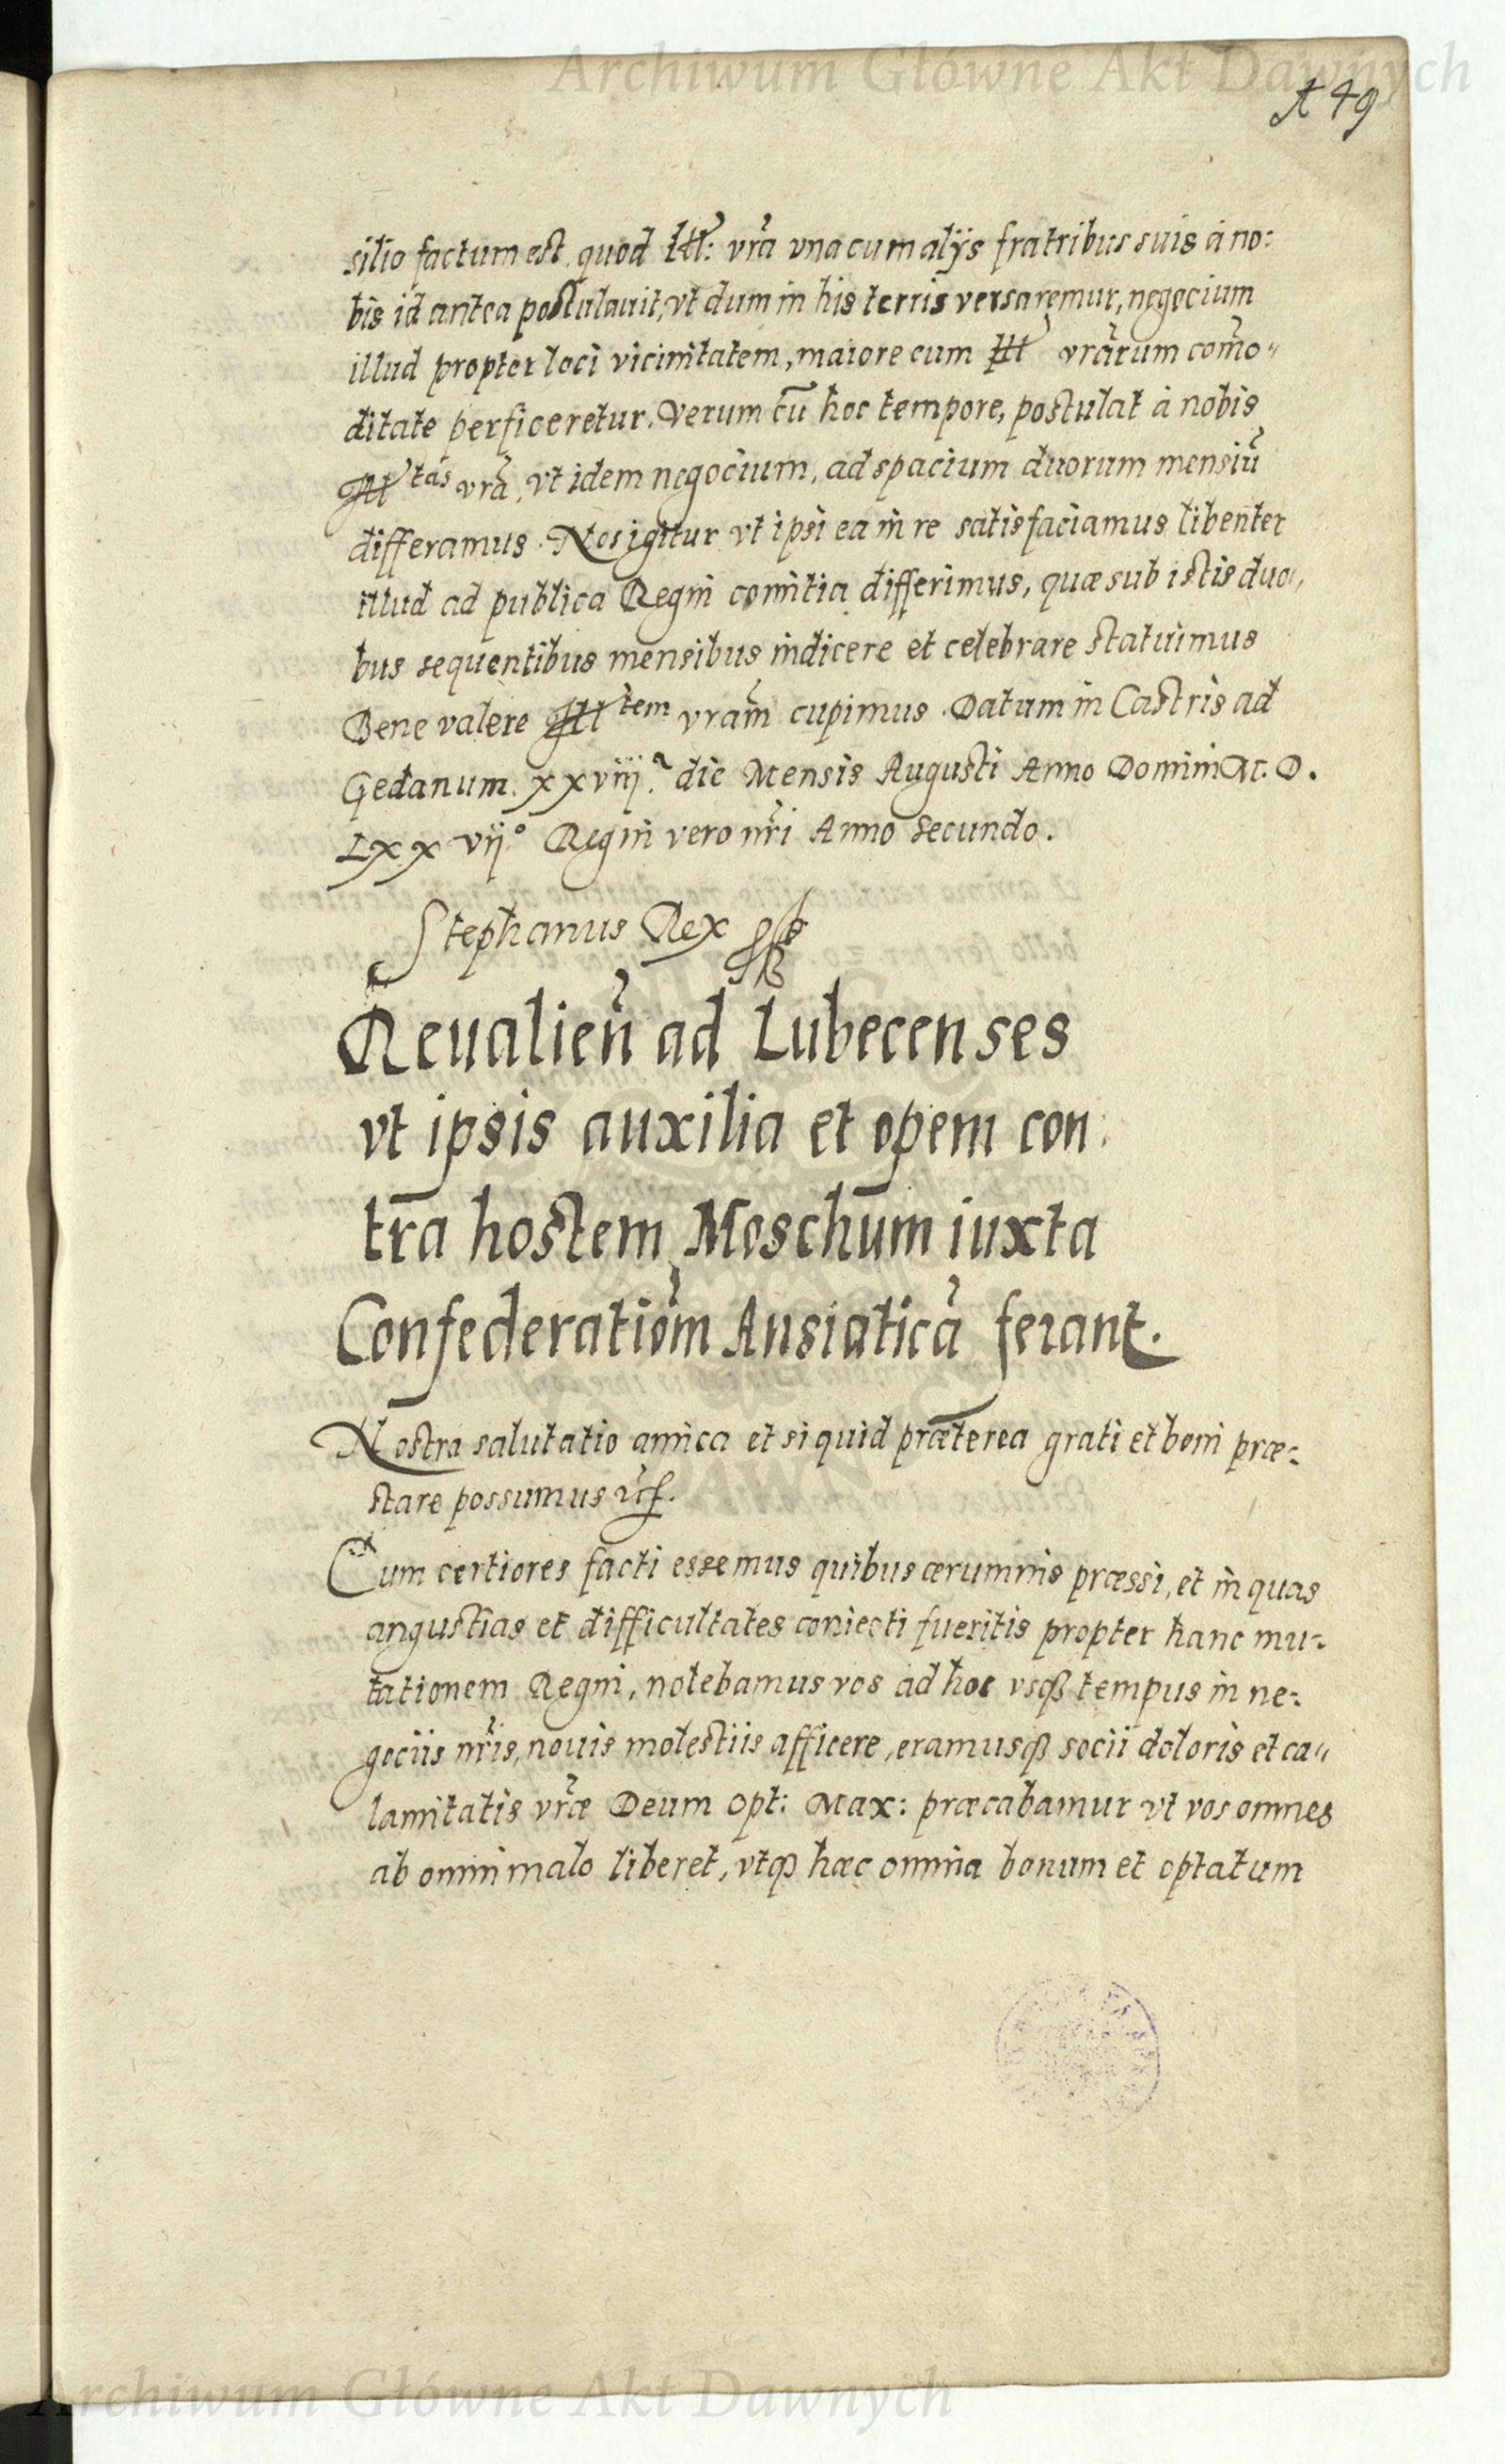 Archiwum Główne Akt Dawnych
A 49
silio factum est, quod Ill: vrã vna cum alijs fratribus suis à no:
bis id antea postulauit, vt dum in his terris versaremur, negocium
illud propter loci vicinitatem, maiore cum Ill vrãrum com̃o„
ditate perficeretur. Verum cũ hoc tempore, postulat à nobis
Ill tas vrã, vt idem negocium, ad spacium duorum mensiũ
differamus. Nos igitur vt ipsi ea in re satisfaciamus libenter
illud ad publica Regni comitia differimus, quæ sub istis duo„
bus sequentibus mensibus indicere et celebrare statuimus
Bene valere Ill tem vram̃ cupimus. Datum in Castris ad
Gedanum. xxviij.ª die Mensis Augusti Anno Domini M. D.
Lxx vij.º Regni vero nr̃i Anno secundo.
Stephanus Rex
Reualien̄ ad Lubecenses
vt ipsis auxilia et opem con:
tra hostem Moschum iuxta
Confederatiom̃ Ansiaticã ferant.
Nostra salutatio amica et si quid præterea grati et boni præ-:
stare possumus
Cum certiores facti essemus quibus ærumnis præssi, et in quas
angustias et difficultates coniecti fueritis propter hanc mu-:
tationem Regni, nolebamus vos ad hoc vsqꝫ tempus in ne-:
gociis nr̃is, nouis molestiis afficere, eramusqꝫ socii doloris et ca„
lamitatis vrãe Deum opt: Max: præcabamur vt vos omnes
ab omni malo liberet, vtqꝫ hæc omnia bonum et optatum
Archiwum Główne Akt Dawnych